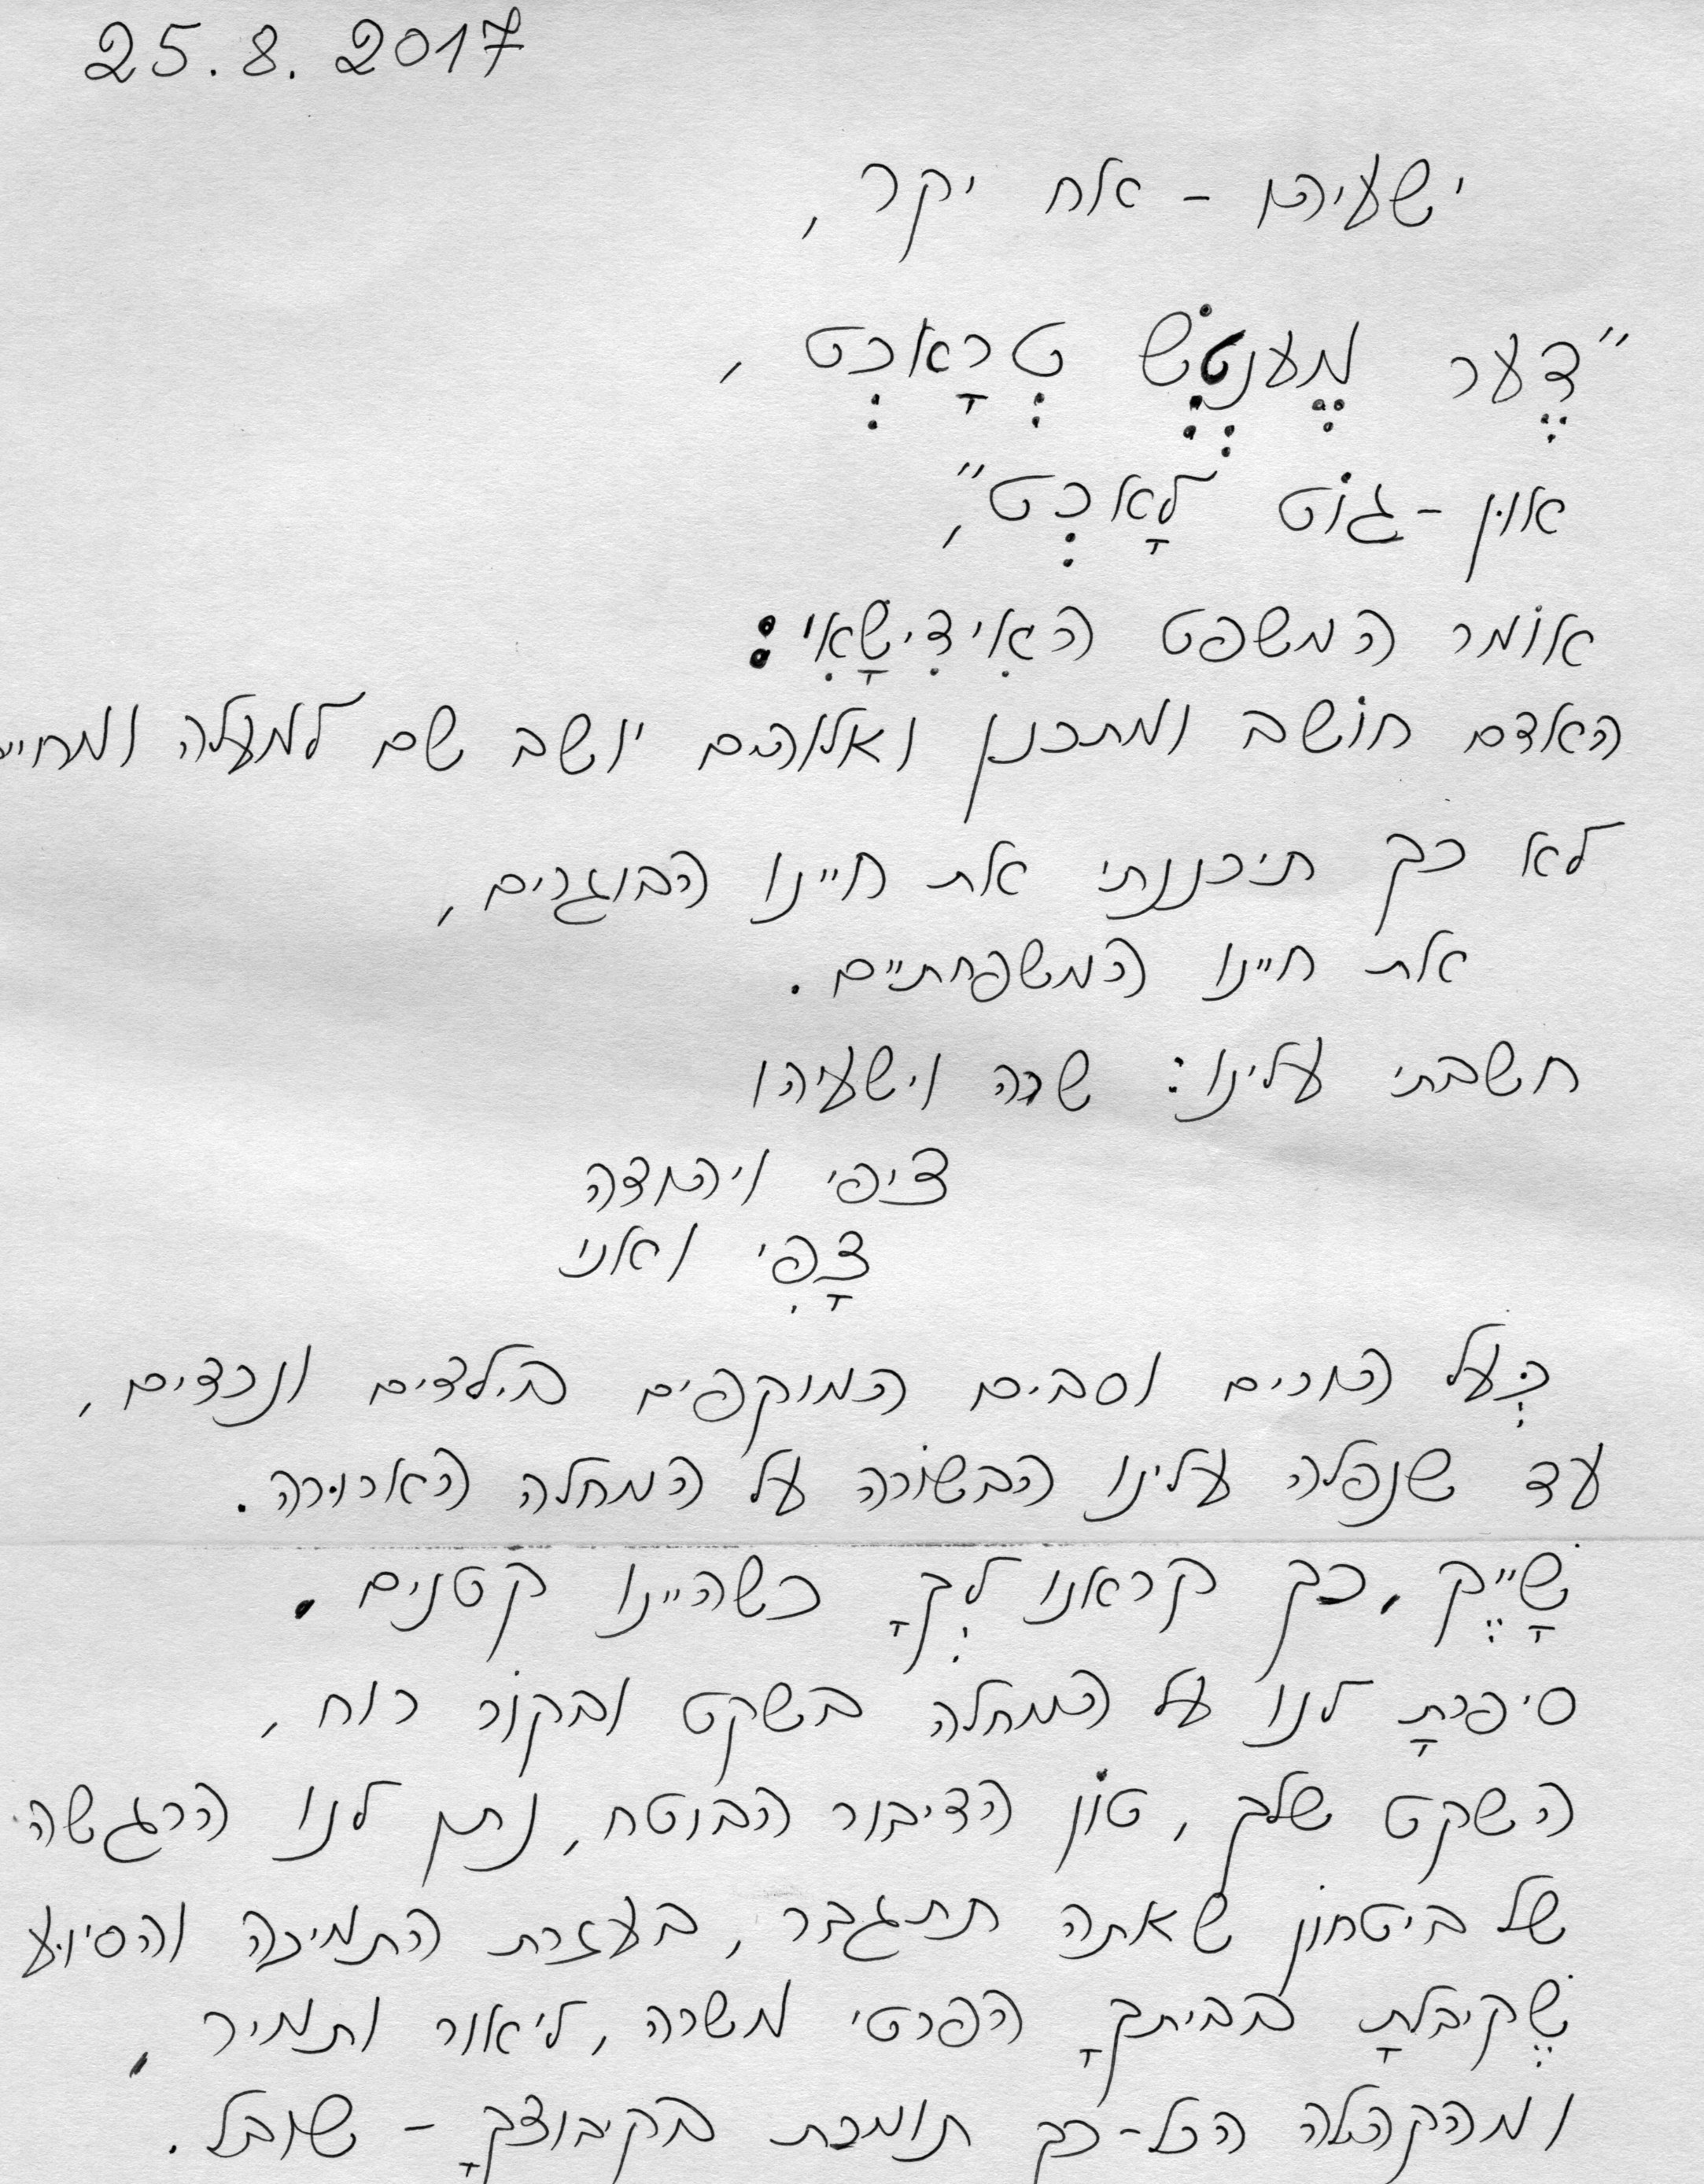 25.8.2017
ישעיהו - אח יקר,
"דֶער מֶענְטְשׁ טְרָאכְט,
און - גוֹט לָאכְט",
אוֹמר המשפט האִידִישָאִי:
האדם חוֹשב ומתכנן ואלוהים יושב שם למעלה ומחייך
לא כך תיכננתי את חיינו הבוגרים,
את חיינו המשפחתיים.
חשבתי עלינו: שרה וישעיהו
ציפי ויהודה
צָפִי ואני
כְּעל הורים וסבים המוקפים בילדים ונכדים,
עד שנפלה עלינו הבשוֹרה על המחלה הארוּרה.
שָׁיֶיק, כך קראנו לְךָ כשהיינו קטנים.
סיפרתָ לנו על המחלה בשקט ובקוֹר רוח,
השקט שלך, טוֹן הדיבור הבוטח, נתן לנו הרגשה
של ביטחוֹן שאתה תתגבר, בעזרת התמיכה והסיוּע
שֶׁקיבלתָ בביתךָ הפרטי משרה, ליאור ותמיר,
ומהקהלה הכל-כך תומכת בקיבוצךָ - שובל.